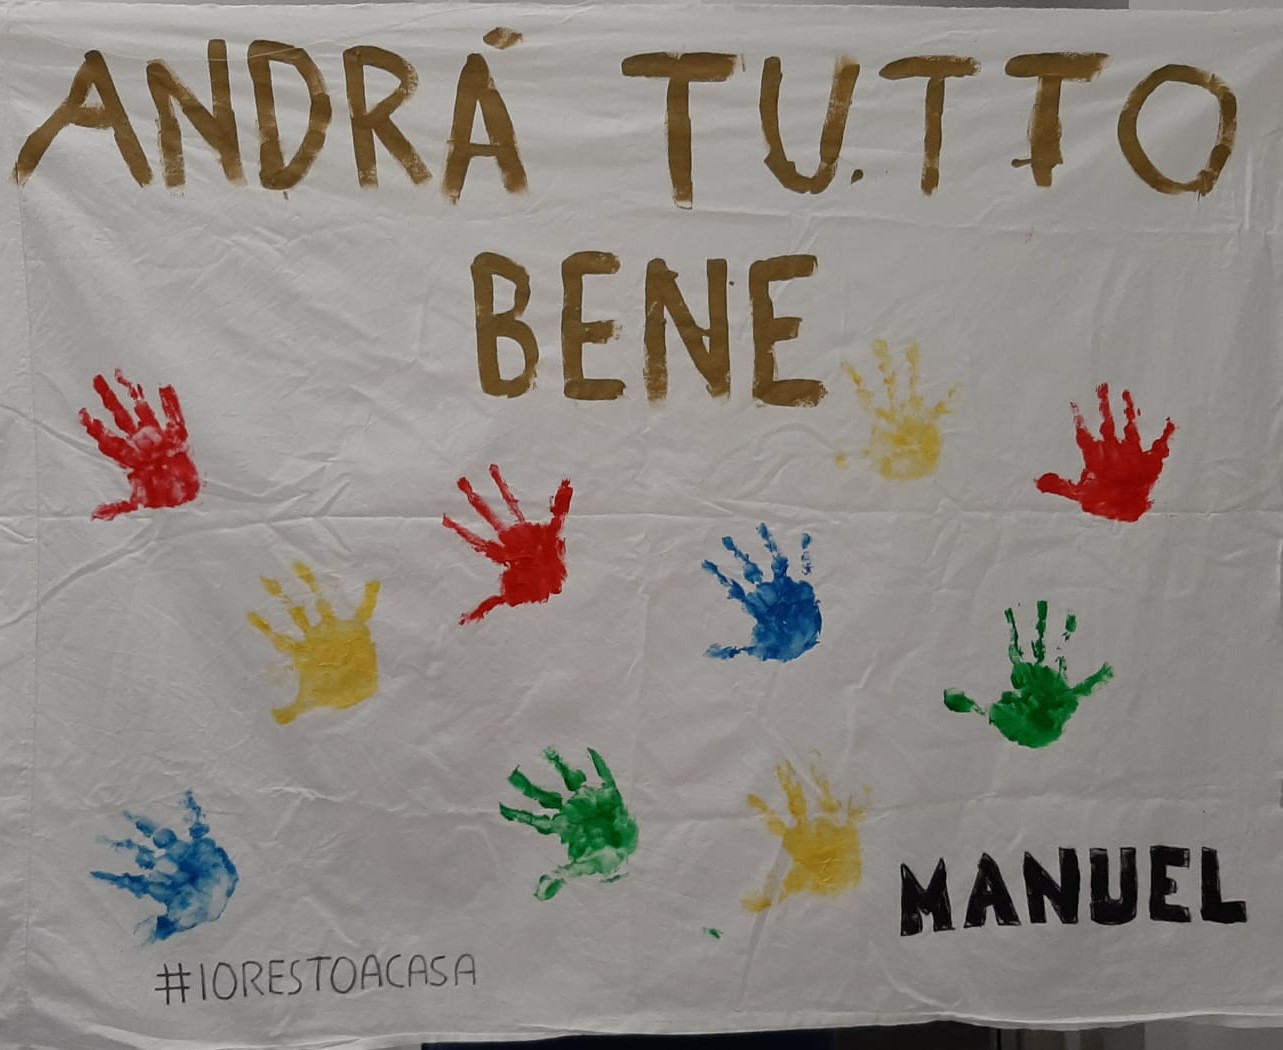 ANDRÁ TUTTO
BENE
MANUEL
#IORESTOACASA